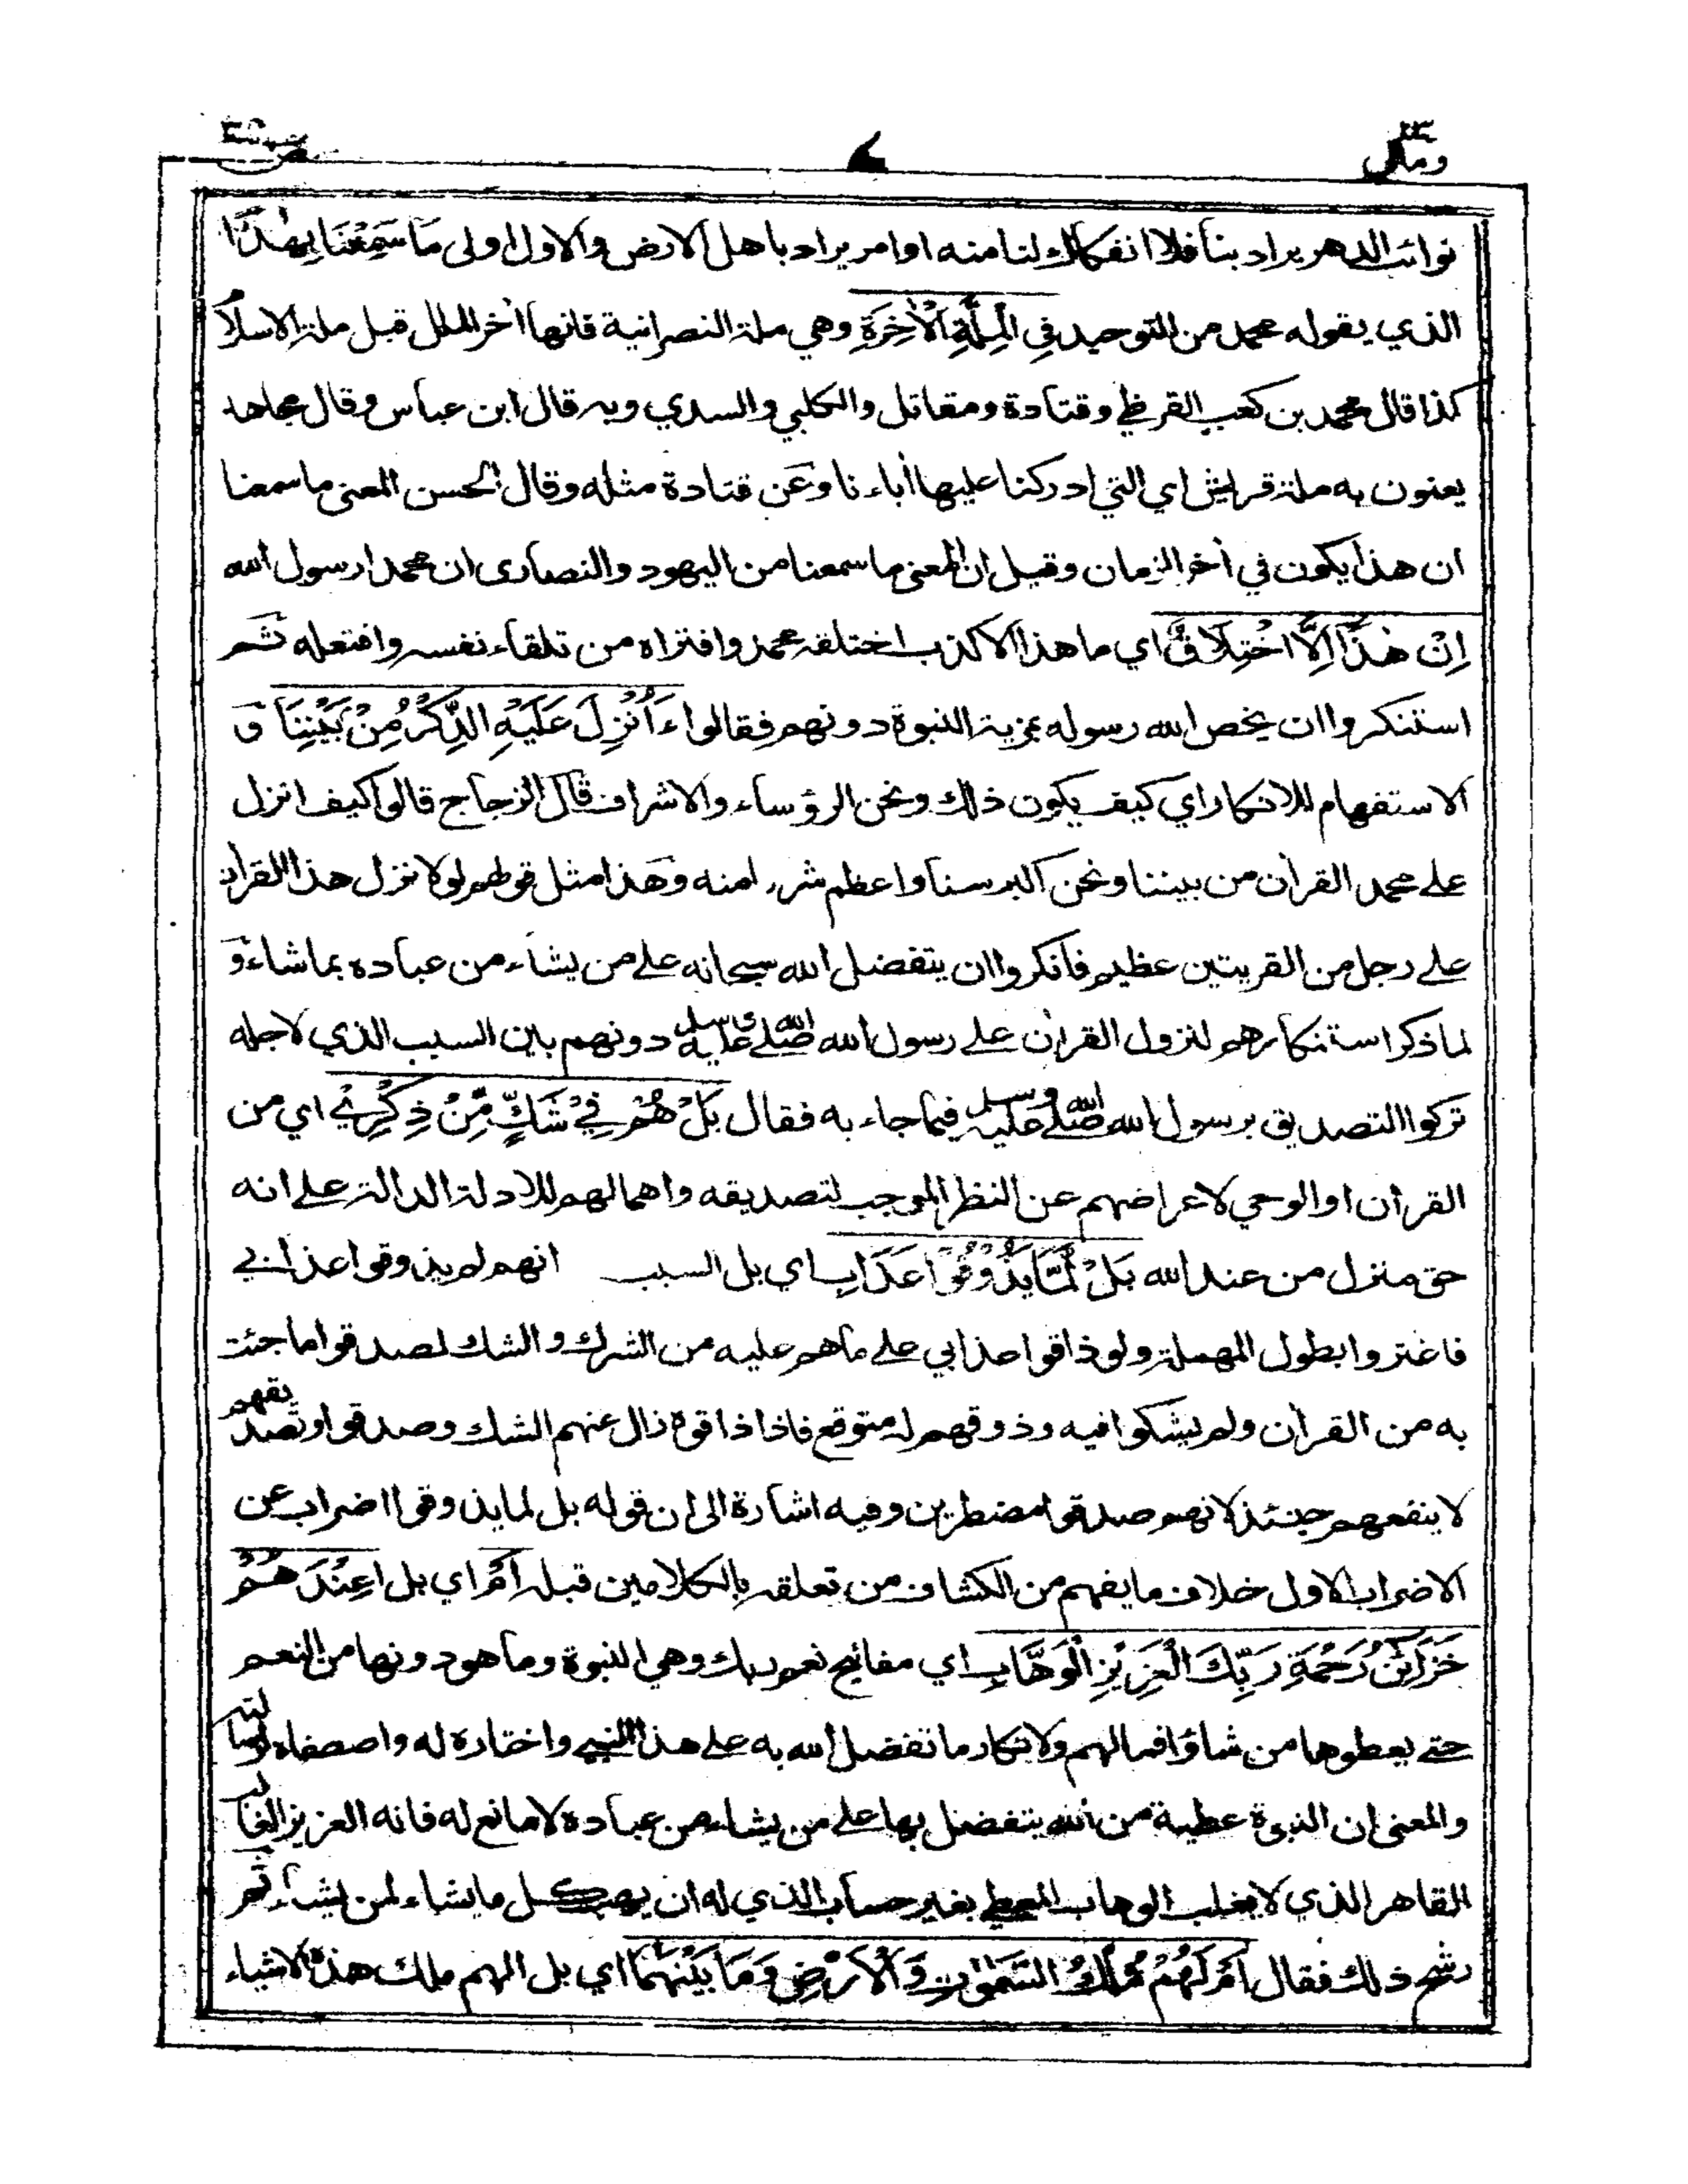 ومالی ٢٣
٤
ص
نوائب الدهر يراد بنا فلا انفكاك لنا منه او امر يراد باهل الارض والاول اولى مَا سَمِعْنَا بِهٰذَا
الذي يقوله محمد من التوحيد فِي الْمِلَّةِ الْاٰخِرَةِ وهي ملة النصرانية فانها أخر الملل قبل ملة الاسلام
كذا قال محمد بن كعب القرظي وقتادة ومقاتل والكلبي والسدي وبه قال ابن عباس وقال مجاهد
يعنون به ملة قريش اي التي ادركنا عليها أباءنا وعن قتادة مثله وقال الحسن المعنى ما سمعنا
ان هذا يكون في أخر الزمان وقيل ان المعنى ما سمعنا من اليهود والنصارى ان محمدا رسول الله
اِنْ هٰذَا اِلَّا اخْتِلَاقٌ اي ما هذا الا كذب اختلقه محمد وافتراه من تلقاء نفسه وافتعله ثم
استنكروا ان يخص الله رسوله بمزية النبوة دونهم فقالوا ءَاُنْزِلَ عَلَيْهِ الذِّكْرُ مِنْ بَيْنِنَا و
الاستفهام للانكار اي كيف يكون ذلك ونحن الرؤساء والاشراف قال الزجاج قالوا كيف انزل
على محمد القرأن من بيننا ونحن اكبر سنا واعظم شرء امنه وهذا مثل قولهم لولا نزل هذا القرأن
على رجل من القريتين عظيم فانكروا ان يتفضل الله سبحانه على من يشاء من عباده بما شاء و
لما ذكر استنكارهم لنزول القرأن على رسول الله صلى الله عليه وسلم دونهم بين السبب الذي لاجله
تركوا التصديق برسول الله صلى الله عليه وسلم فيما جاء به فقال بَلْ هُمْ فِيْ شَكٍّ مِّنْ ذِكْرِيْ اي من
القرأن او الوحي لاعراضهم عن النظر الموجب لتصديقه واهمالهم للادلة الدالة على انه
حق منزل من عند الله بَلْ لَّمَّا يَذُوْقُوْا عَذَابِ اي بل السبب انهم لم يذوقوا عذابي
فاغتروا بطول المهملة ولو ذاقوا عذابي على ما هم عليه من الشرك والشك لصدقوا ما جئت
به من القرأن ولم يشكوا فيه وذوقهم له متوقع فاذا ذاقوه زال عنهم الشك وصدقوا وتصديقهم
لا ينفعهم حينئذ لانهم صدقوا مضطرين وفيه اشارة الى ان قوله بل لما يذوقوا اضراب عن
الاضراب الاول خلاف ما يفهم من الكشاف من تعلقه بالكلامين قبله اَمْ اي بل اعِنْدَهُمْ
خَزَائِنُ رَحْمَةِ رَبِّكَ الْعَزِيْزِ الْوَهَّابِ اي مفاتيح نعم ربك وهي النبوة وما هو دونها من النعم
حتى يعطوها من شاؤا فما لهم ولانكار ما تفضل الله به على هذا النبي واختاره له واصصفاه لرسالته
والمعنى ان النبوة عطية من الله يتفضل بها على من يشاء من عباده لا مانع له فانه العزيز الغالب
القاهر الذي لا يغلب الوهاب المعطي بغير حساب الذي له ان يهب كل ما يشاء لمن يشاء ثم
رشح ذلك فقال اَمْ لَهُمْ مُّلْكُ السَّمٰوٰتِ وَالْاَرْضِ وَمَا بَيْنَهُمَا اي بل الهم ملك هذه الاشياء